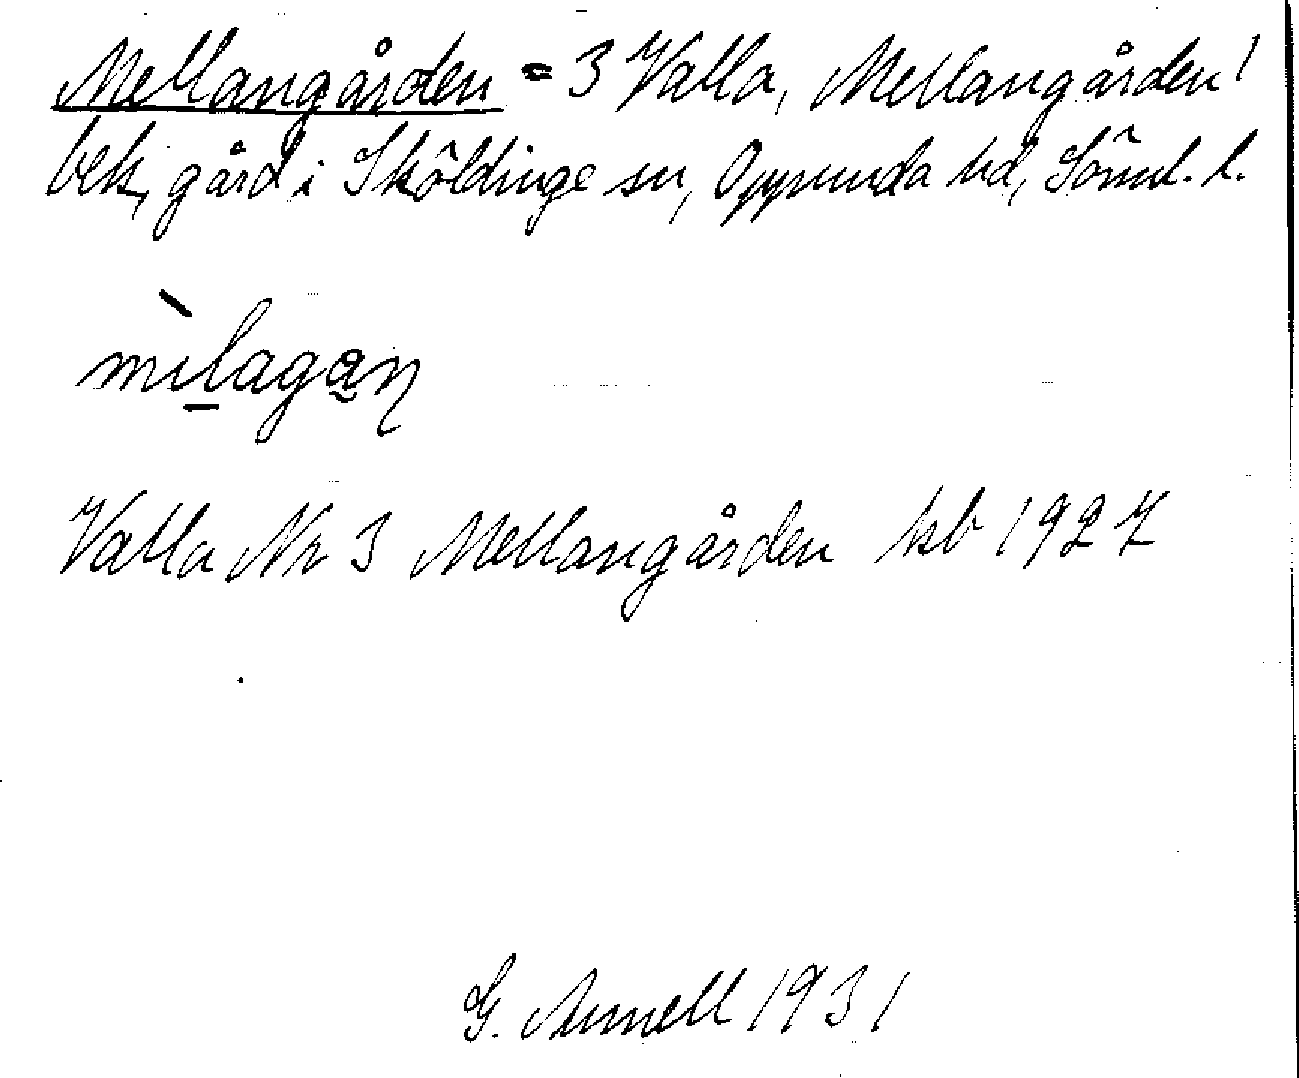 Mellangården = 3 Valla, Mellangården!
bek, gård i Sköldinge sn, Oppunda hd, Söml. l.
mìlagan
Valla Nr 3 Mellangården ksb 1927
G. 1931